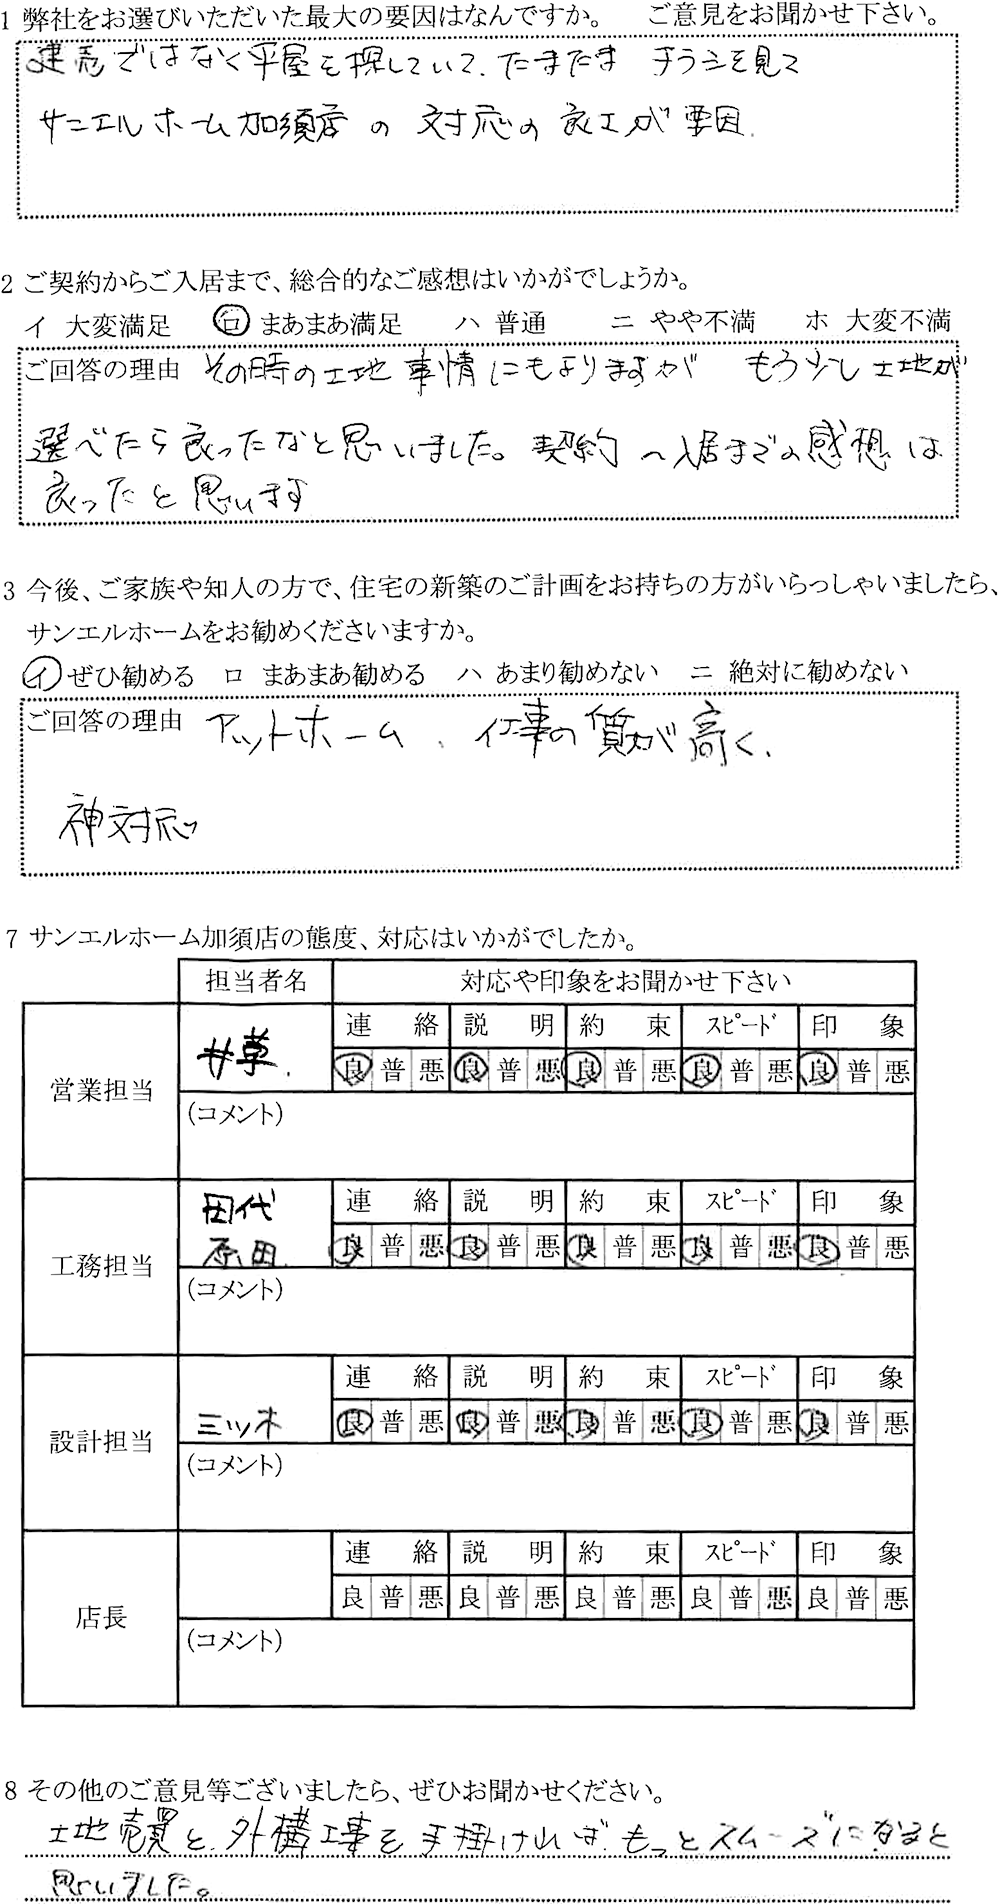 1 弊社をお選びいただいた最大の要因はなんですか。　ご意見をお聞かせ下さい。
建売ではなく平屋を探していて、たまたま チラシを見て
サンエルホーム加須店の 対応の良さが要因.
2 ご契約からご入居まで、総合的なご感想はいかがでしょうか。
イ 大変満足　ロ まあまあ満足　ハ 普通　ニ やや不満　ホ 大変不満
ご回答の理由 その時の土地事情にもよりますが もう少し土地が
選べたら良ったなと思いました。契約〜入居までの感想は
良ったと思います
3 今後、ご家族や知人の方で、住宅の新築のご計画をお持ちの方がいらっしゃいましたら、
サンエルホームをお勧めくださいますか。
イ ぜひ勧める　ロ まあまあ勧める　ハ あまり勧めない　ニ 絶対に勧めない
ご回答の理由 アットホーム、仕事の質が高く、
神対応
7 サンエルホーム加須店の態度、対応はいかがでしたか。
担当者名　対応や印象をお聞かせ下さい
営業担当　井草.　連絡　説明　約束　スピード　印象
良 普 悪　良 普 悪　良 普 悪　良 普 悪　良 普 悪
(コメント)
工務担当　田代　連絡　説明　約束　スピード　印象
原田　良 普 悪　良 普 悪　良 普 悪　良 普 悪　良 普 悪
(コメント)
設計担当　三ツ木　連絡　説明　約束　スピード　印象
良 普 悪　良 普 悪　良 普 悪　良 普 悪　良 普 悪
(コメント)
店長　連絡　説明　約束　スピード　印象
良 普 悪　良 普 悪　良 普 悪　良 普 悪　良 普 悪
(コメント)
8 その他のご意見等ございましたら、ぜひお聞かせください。
土地売買と、外構工事を手掛ければ、もっとスムーズになると
思いました。